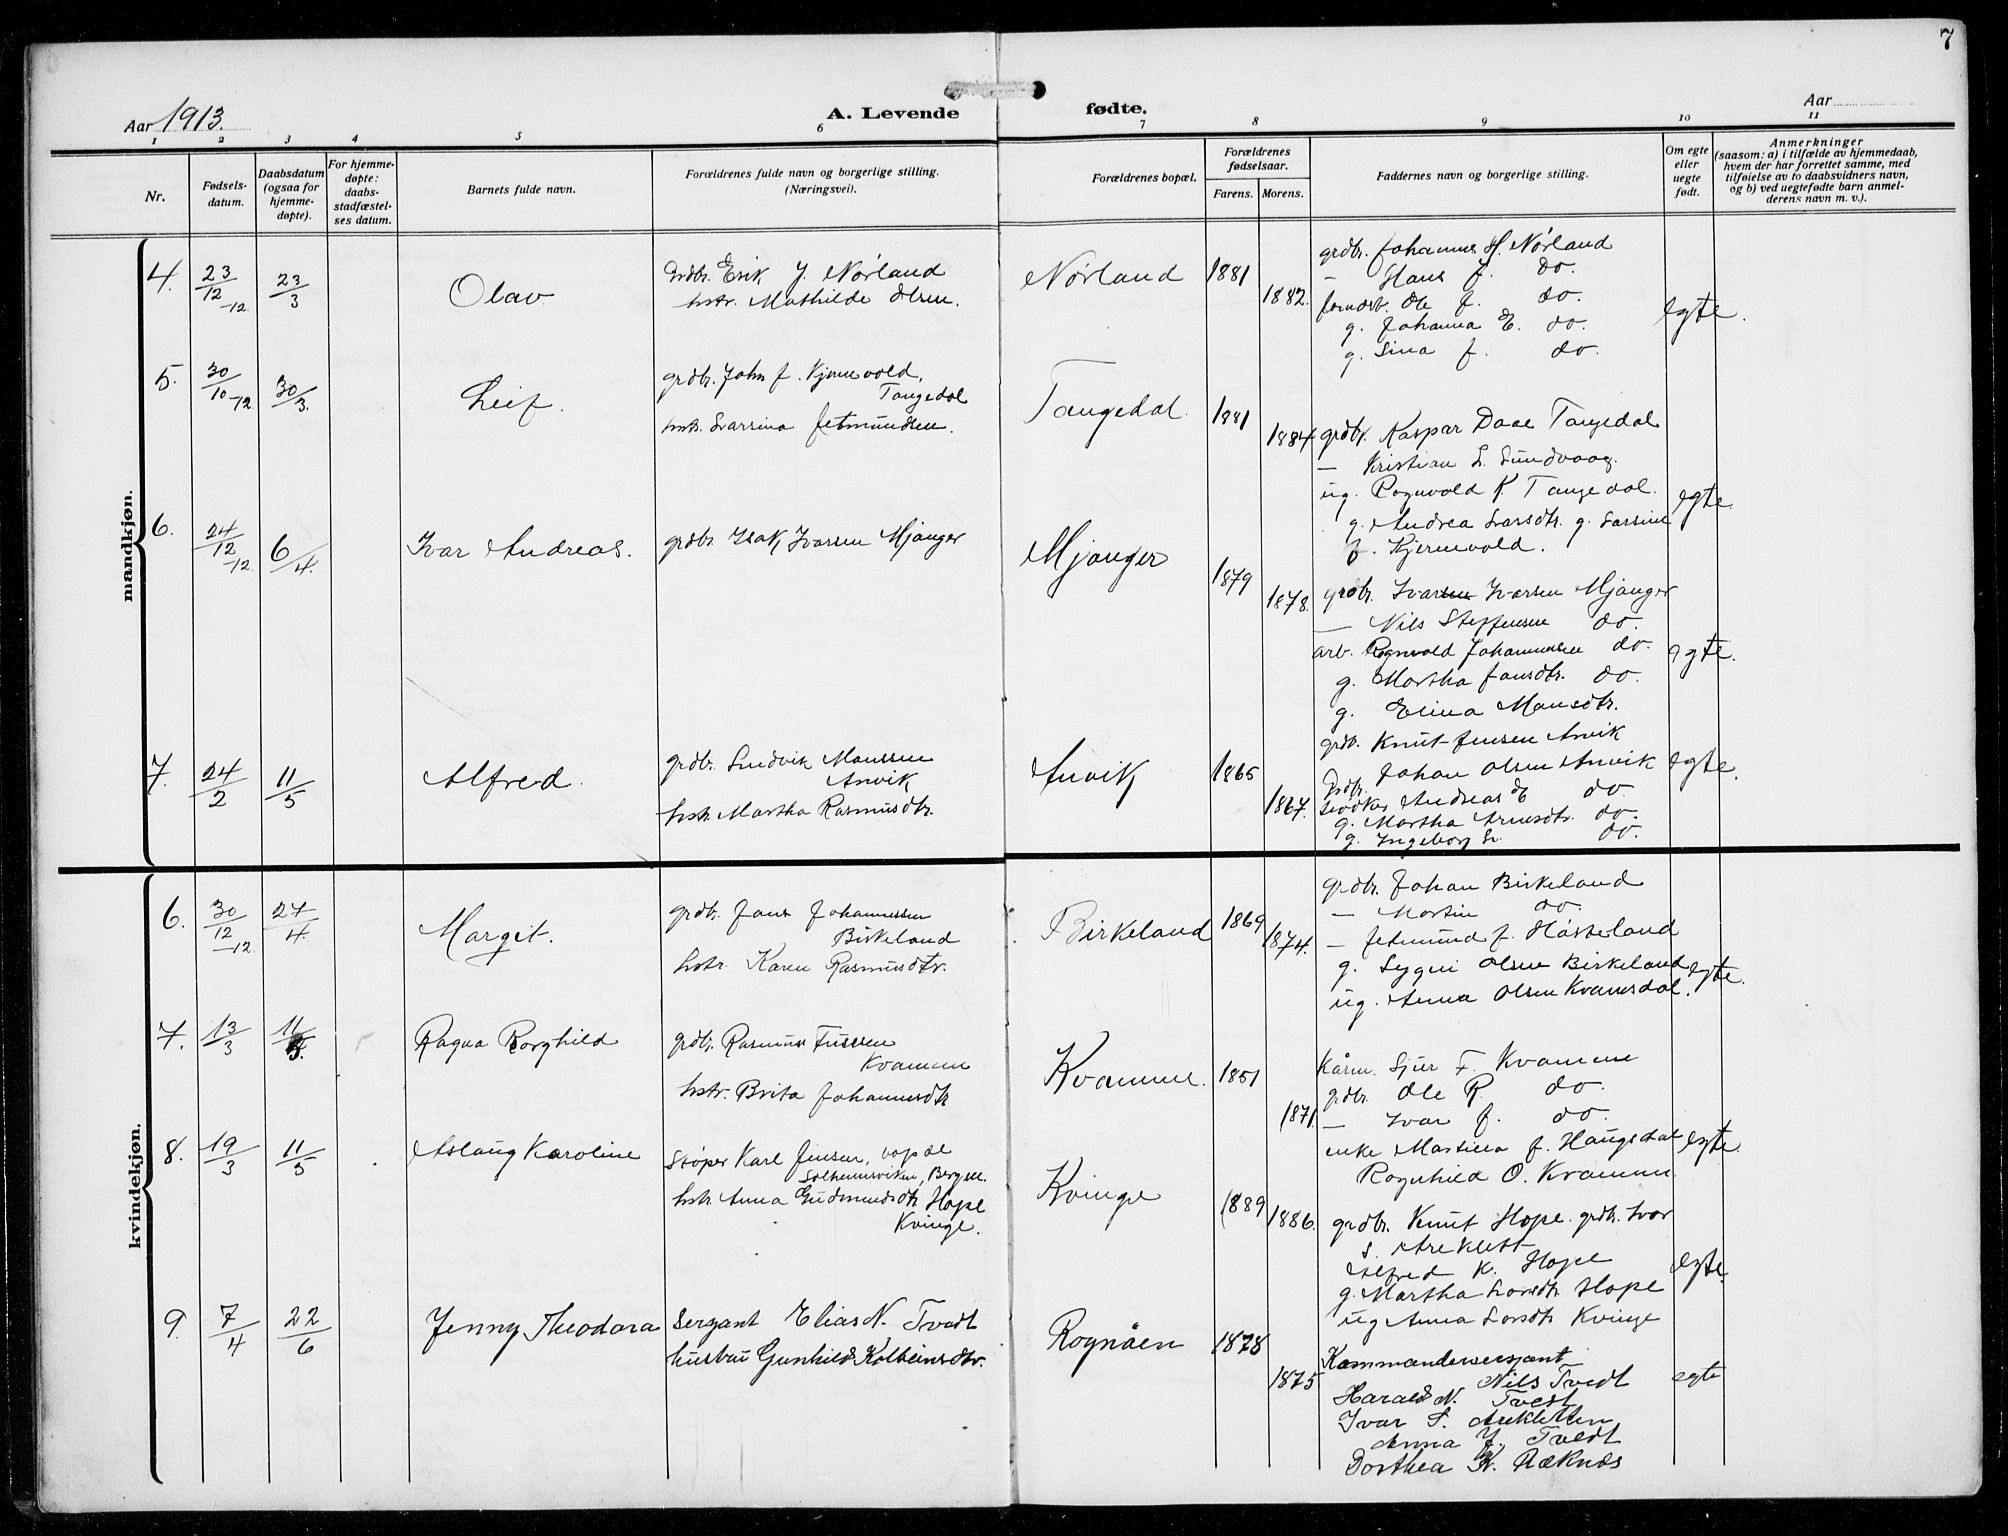 7
Aar 1913.
A. Levende fødte.
Aar
1 2 3 4 5 6 7 8 9 10 11
Nr.
Fødsels-
datum.
Daabsdatum
(ogsaa for
hjemme-
døpte).
For hjemme-
døpte:
daabs-
stadfæstel-
ses datum.
Barnets fulde navn.
Forældrenes fulde navn og borgerlige stilling.
(Næringsvei).
Forældrenes bopæl.
Forældrenes
fødselsaar.
Farens. Morens.
Faddernes navn og borgerlige stilling.
Om egte
eller
uegte
født.
Anmerkninger
(saasom: a) i tilfælde av hjemmedaab,
hvem der har forrettet samme, med
tilføielse av to daabsvidners navn,
og b) ved uegtefødte barn anmel-
derens navn m. v.).
mandkjøn.
4. 23/12-12. 23/3
Olav
Grdbr. Erik J. Nørland
hstr. Mathilde Olsen.
Nørland
1881
1882.
grdbr. Johannes H. Nørland
– Hans J. do.
Ole J. do.
g. Johanna E. do.
g. Sina J. do.
egte.
5. 30/10-12 30/3.
Leif.
grdbr. John J. Kjerrevold,
Tangedal
hstr. Larsina Jetmundsen.
Tangedal.
1881
1884
grdbr. Kaspar Daae Tangedal
– Kristian L. Sundvaag.
ug. Rognvald K. Tangedal.
g. Andrea Larsdtr. g. Larsine
J. Kjerrevold.
egte.
6. 24/12-12. 6/4.
Ivar Andreas.
grdbr. Isak Ivarsen Mjanger
Mjanger
1879
1878.
grdbr. Ivarsen Ivarsen Mjanger
– Nils Steffensen do.
arb. Rognvald Johannessen do.
g. Martha Jansdtr. do.
g. Elina Monsdtr.
egte.
7. 24/2 11/5
Alfred.
grdbr. Ludvik Monssen
Anvik
hstr. Martha Rasmusdtr.
Anvik
1865
1867.
grdb. Knut Jensen Anvik
Johan Olsen Anvik
Grdbr. Andreas E do.
g. Martha Arnesdtr. do.
g. Ingeborg L. do.
egte.
kvindekjøn.
6. 30/12-12. 27/4.
Margit.
grdbr. Jans Johannessen
Birkeland
hstr. Karen Rasmusdtr.
Birkeland
1869
1874.
grdbr. Johan Birkeland
– Martin do.
– Jetmund J. Høsteland
g. Sygni Olsen Birkeland
ug. Anna Olsen Kvamsdal.
egte.
7. 13/3 11/5.
Ragna Borghild
grdbr. Rasmus Fussen
Kvamme
hstr. Brita Johannesdtr
Kvamme.
1851
1871.
Kårm. Sjur F. Kvamme
grdbr. Ole R. do.
– Ivar J. do.
enke Martina J. Haugsdal
Rognhild O. Kvamme.
egte.
8. 19/3 11/5
Aslaug Karoline
Støper Karl Jensen, opde
Solheimsviken, Bergen.
hstr. Anna Gudmundsdtr. Hope
Kvinge.
Kvinge
1889
1886.
grdbr. Knut Hope. grdbr. Ivar
S. Areklett
Alfred K. Hope
g. Martha Larsdtr. Hope
ug Anna Larsdtr Kvinge
egte
9. 7/4 22/6
Jenny Theodora
Sergant Elias N. Tvedt
hustru Gunhild Kolbeinsdtr.
Rognåen
1878
1875
Kommandersersjant
Nils Tvedt
Harald N. Tvedt
Ivar S. Arekletten
Anna J. Tvedt
Dorthea K. Ræknes
egte